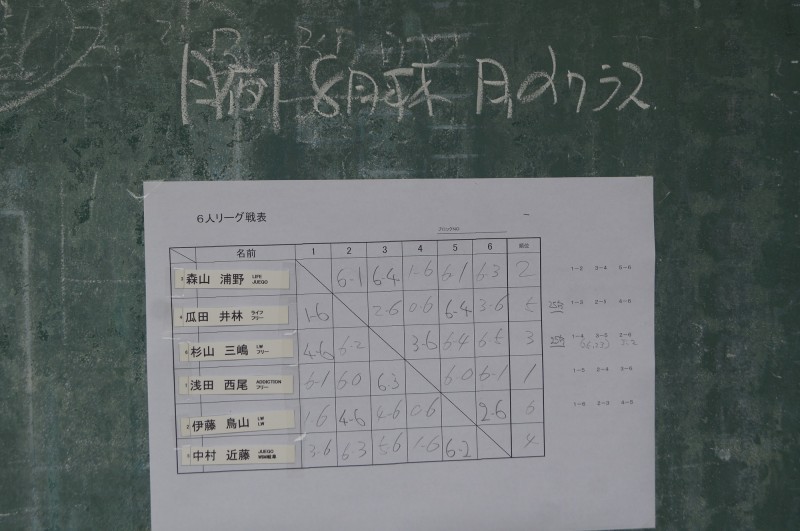 8月末 クラス
6人リーグ戦表
名前 1 2 3 4 5 6 順位
森山 浦野 LIFE JUEGO 6-1 6-4 1-6 6-1 6-3 2
瓜田 井林 ライフ フリー 1-6 2-6 0-6 6-4 3-6 5
杉山 三嶋 LW フリー 4-6 6-2 3-6 6-4 6-5 3
浅田 西尾 ADDICTION フリー 6-1 6-0 6-3 6-0 6-1 1
伊藤 鳥山 LW LW 1-6 4-6 4-6 0-6 2-6 6
中村 近藤 JUEGO 3-6 6-3 5-6 1-6 6-2 4
1-2 3-4 5-6
1-3 2-5 4-6
1-4 2-6
1-5 3-6
1-6 2-3 4-5